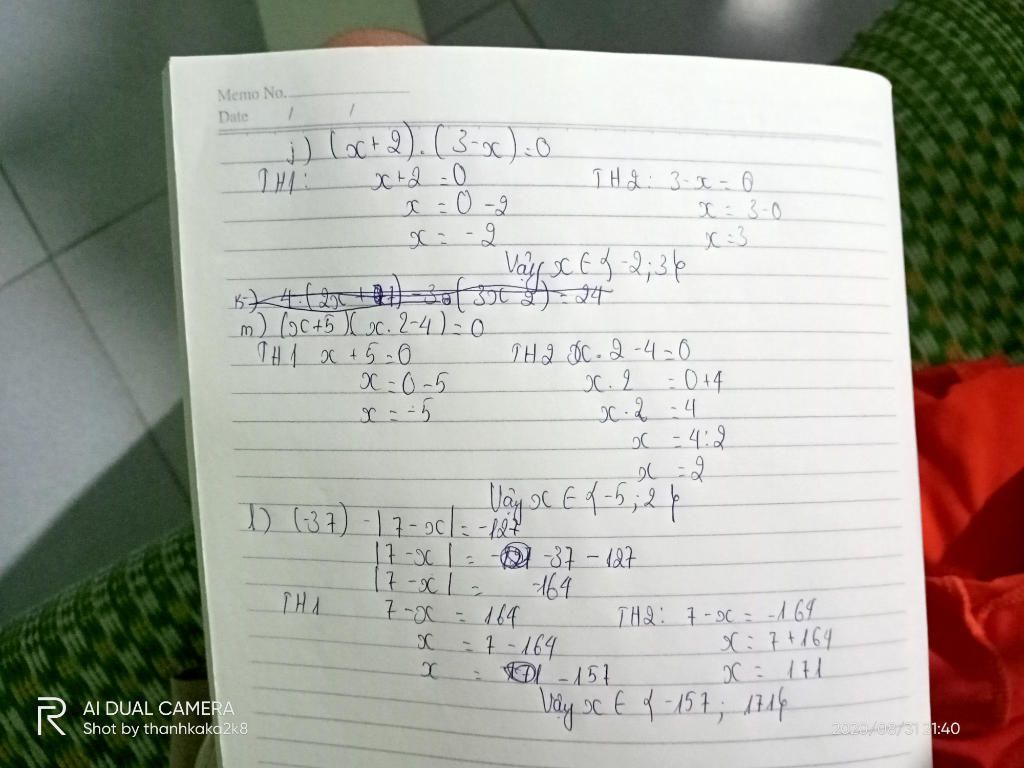 Memo No.
Date / /
j) (x+2).(3-x)=0
TH1: x+2 =0 TH2: 3-x=0
x = 0-2 x = 3-0
x = -2 x=3
Vậy x ∈ {-2;3}
k) 4.(2x+1)-3.(3x-2)=24
m) (x+5)(x.2-4)=0
TH1 x+5=0 TH2 x.2-4=0
x=0-5 x.2 =0+4
x=-5 x.2 =4
x =4:2
x =2
Vậy x ∈ {-5;2}
l) (-37) -|7-x|= -127
|7-x| = -37 -127
|7-x| = -164
TH1 7-x = 164 TH2: 7-x = -164
x = 7-164 x= 7+164
x = -157 x= 171
Vậy x ∈ {-157; 171}
AI DUAL CAMERA
Shot by thanhkaka2k8
2020/08/31 21:40